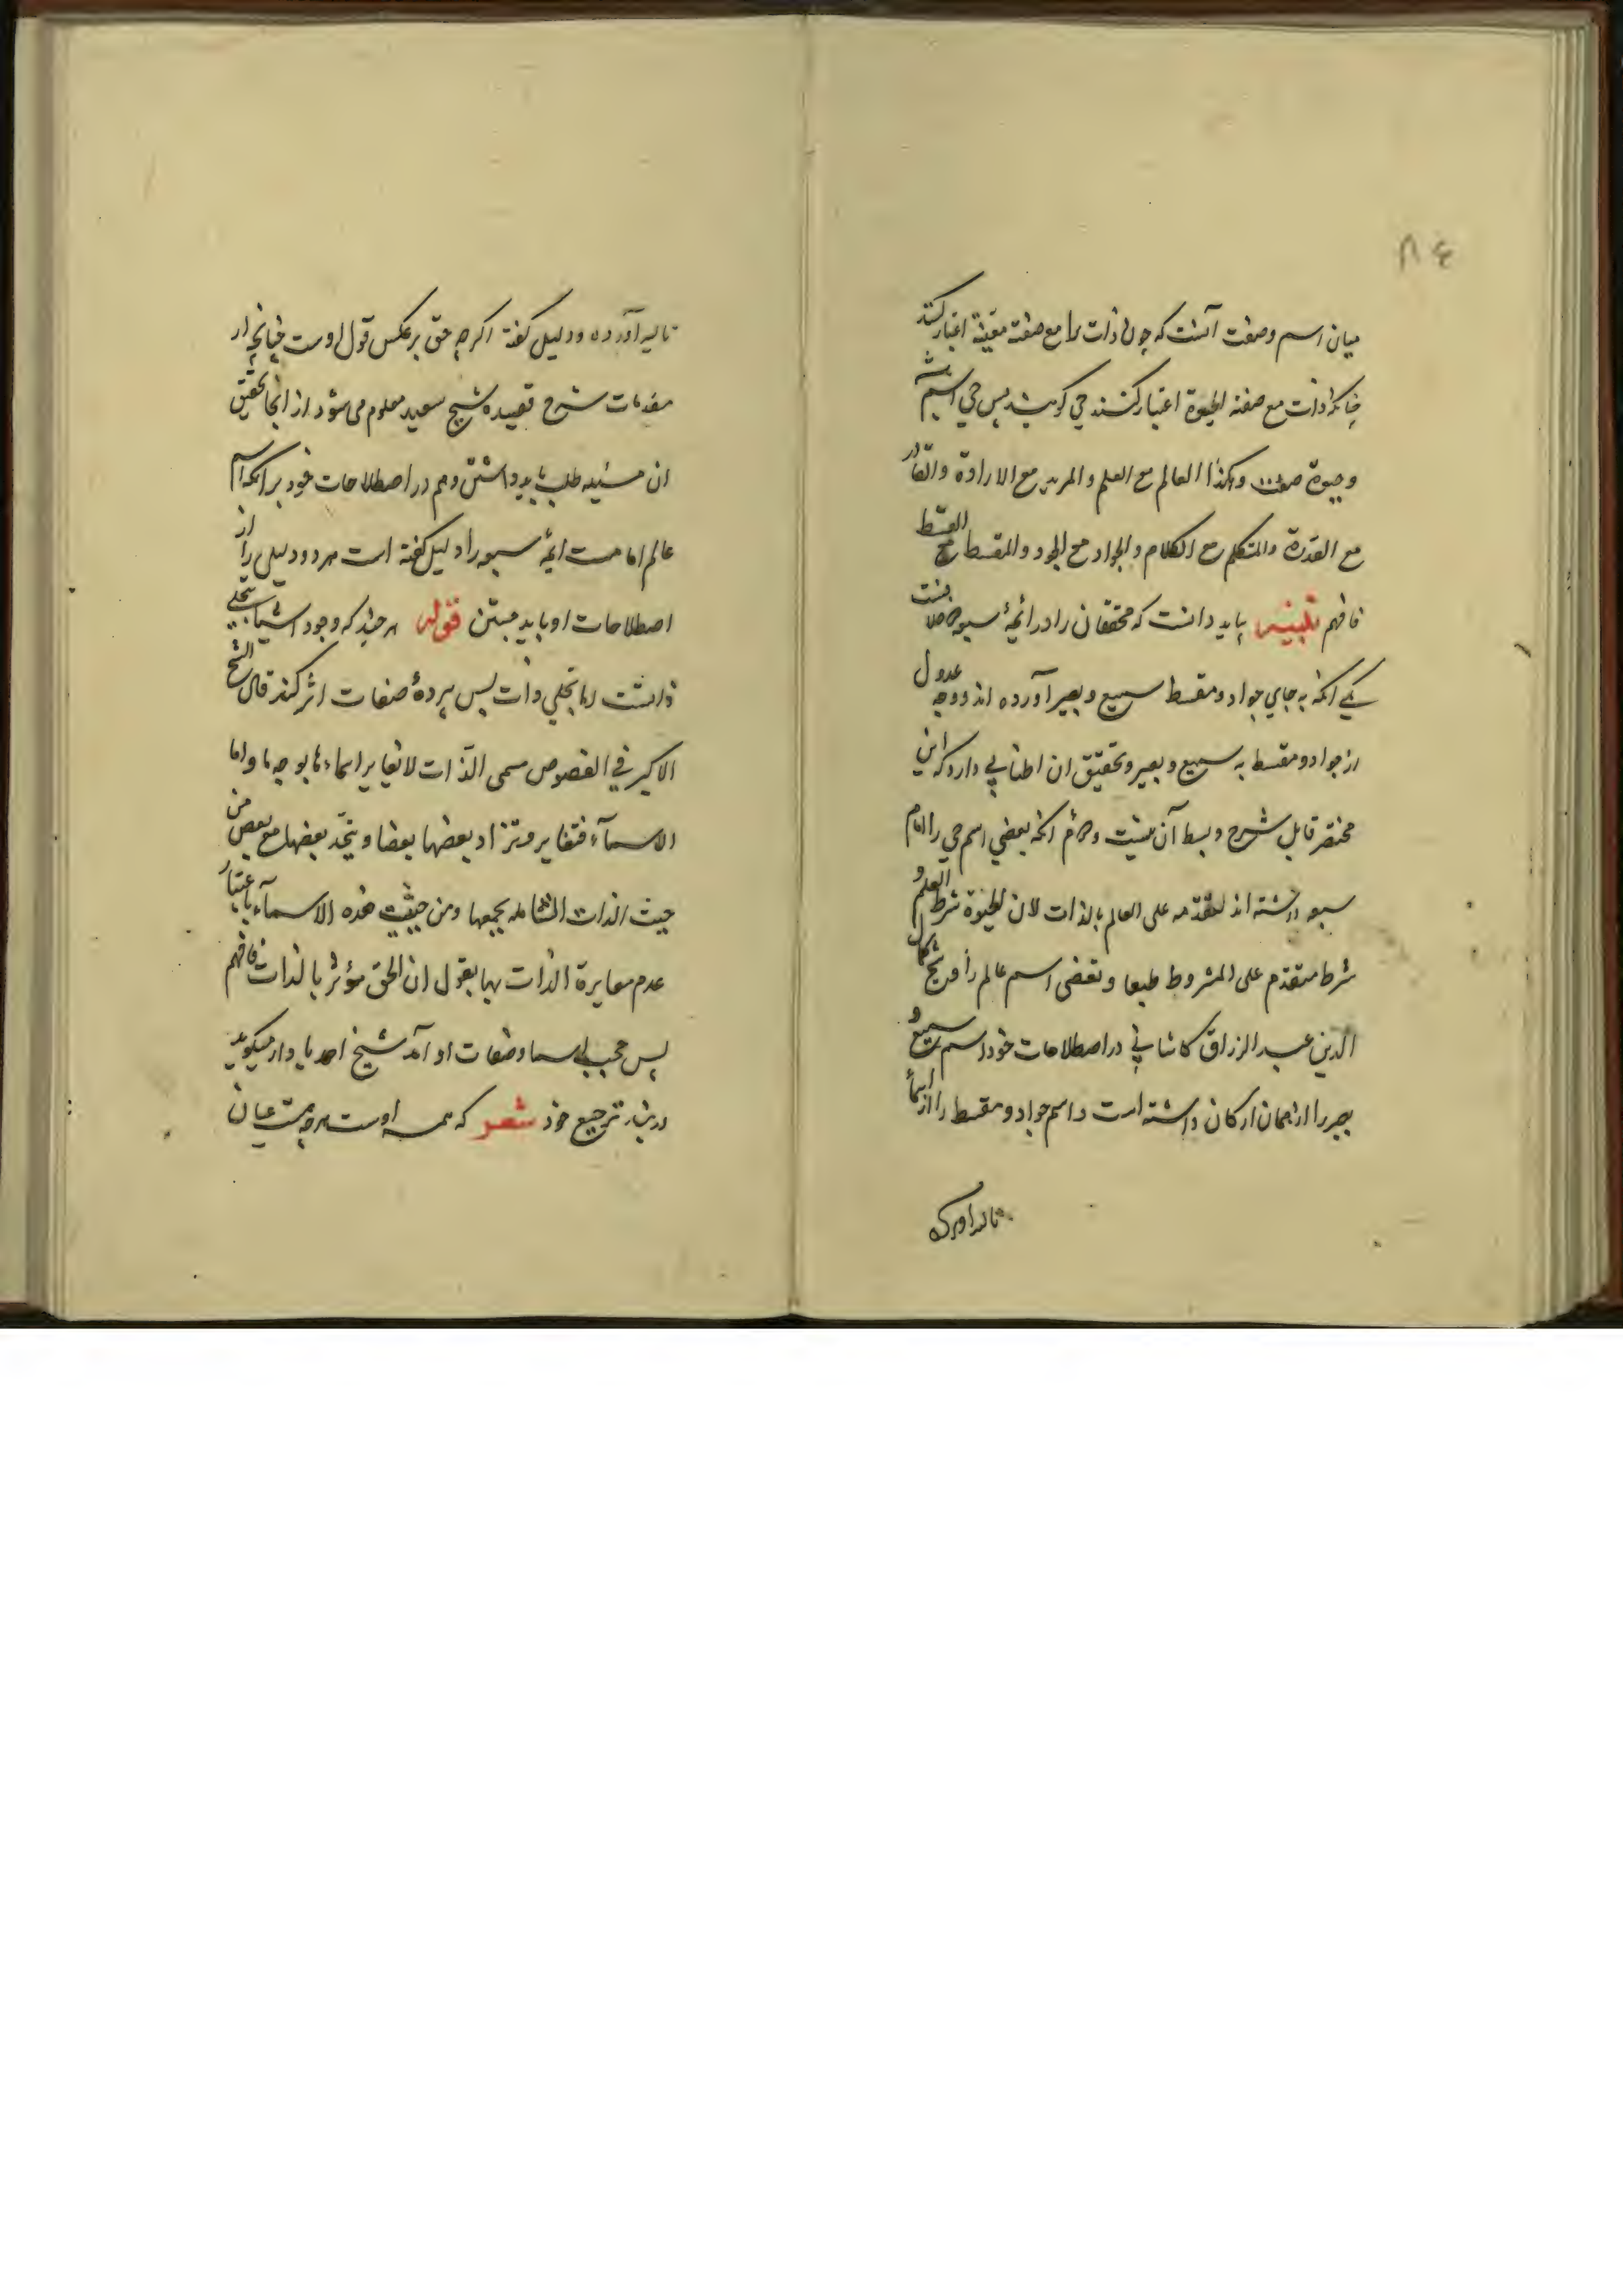 ۸٤
میان اسم وصفت آنست که چون ذات را مع صفت معینة اعتبار کنند
چنانکه ذات مع صفة الحیوة اعتبار کنند حی کویند پس حی اسم باشد
وحیوة صفت وهکذا العالم مع العلم والمرید مع الارادة والقادر
مع القدرة والمتکلم مع الکلام والجواد مع الجود والمقسط مع القسط
فافهم تلبیس باید دانست که محققان را در ائمهٔ سبعه
یکی انکه به جای جواد ومقسط سمیع وبصیر آورده اند ووجه عدول
از جواد ومقسط به سمیع وبصیر وتحقیق ان اطنابی دارد که این
مختصر قابل شرح وبسط آن نیست ودوم انکه بعضی اسم حی را امام
سبعه داشته اند لتقدمه علی العالم بالذات لان الحیوة شرط العلم و
شرط متقدم علی المشروط طبعا وبعضی اسم عالم را وشیخ کمال
الدین عبد الرزاق کاشانی در اصطلاحات خود اسم سمیع و
بصیر را ارکان داشته است واسم جواد ومقسط را از اسمآ
تالیه آورده
تالیه آورده ودلیل کفته اکرچه حق بر عکس قول اوست چنانچه از
مقدمات شرح قصیده شیخ سعید معلوم می شود از انجا تحقیق
ان مسئله طلب باید داشتن وهم در اصطلاحات خود بر انکه اسم
عالم امامست ائمهٔ سبعه را دلیل کفته است هر دو دلیل را از
اصطلاحات او باید جستن قوله هر چند که وجود اشیا بتجلی
ذاتست اما تجلی ذات پس پردهٔ صفات اثر کند قال الشیخ
الاکبر فی الفصوص مسمی الذات لا تغایر اسماءها بوجه ما واما
الاسمآء فتغایر وتزاد بعضها بعضا ویتحد بعضها مع بعض من
حیث الذات الشامله بجمعها ومن حیثیت هذه الاسمآء باعتبار
عدم مغایرة الذات بها یقول ان الحق مؤثر بالذات فافهم
پس حجب اسما وصفات او آمد شیخ احد میکوید
در ترجیع خود شعر که همه اوست هرچه هست عیان